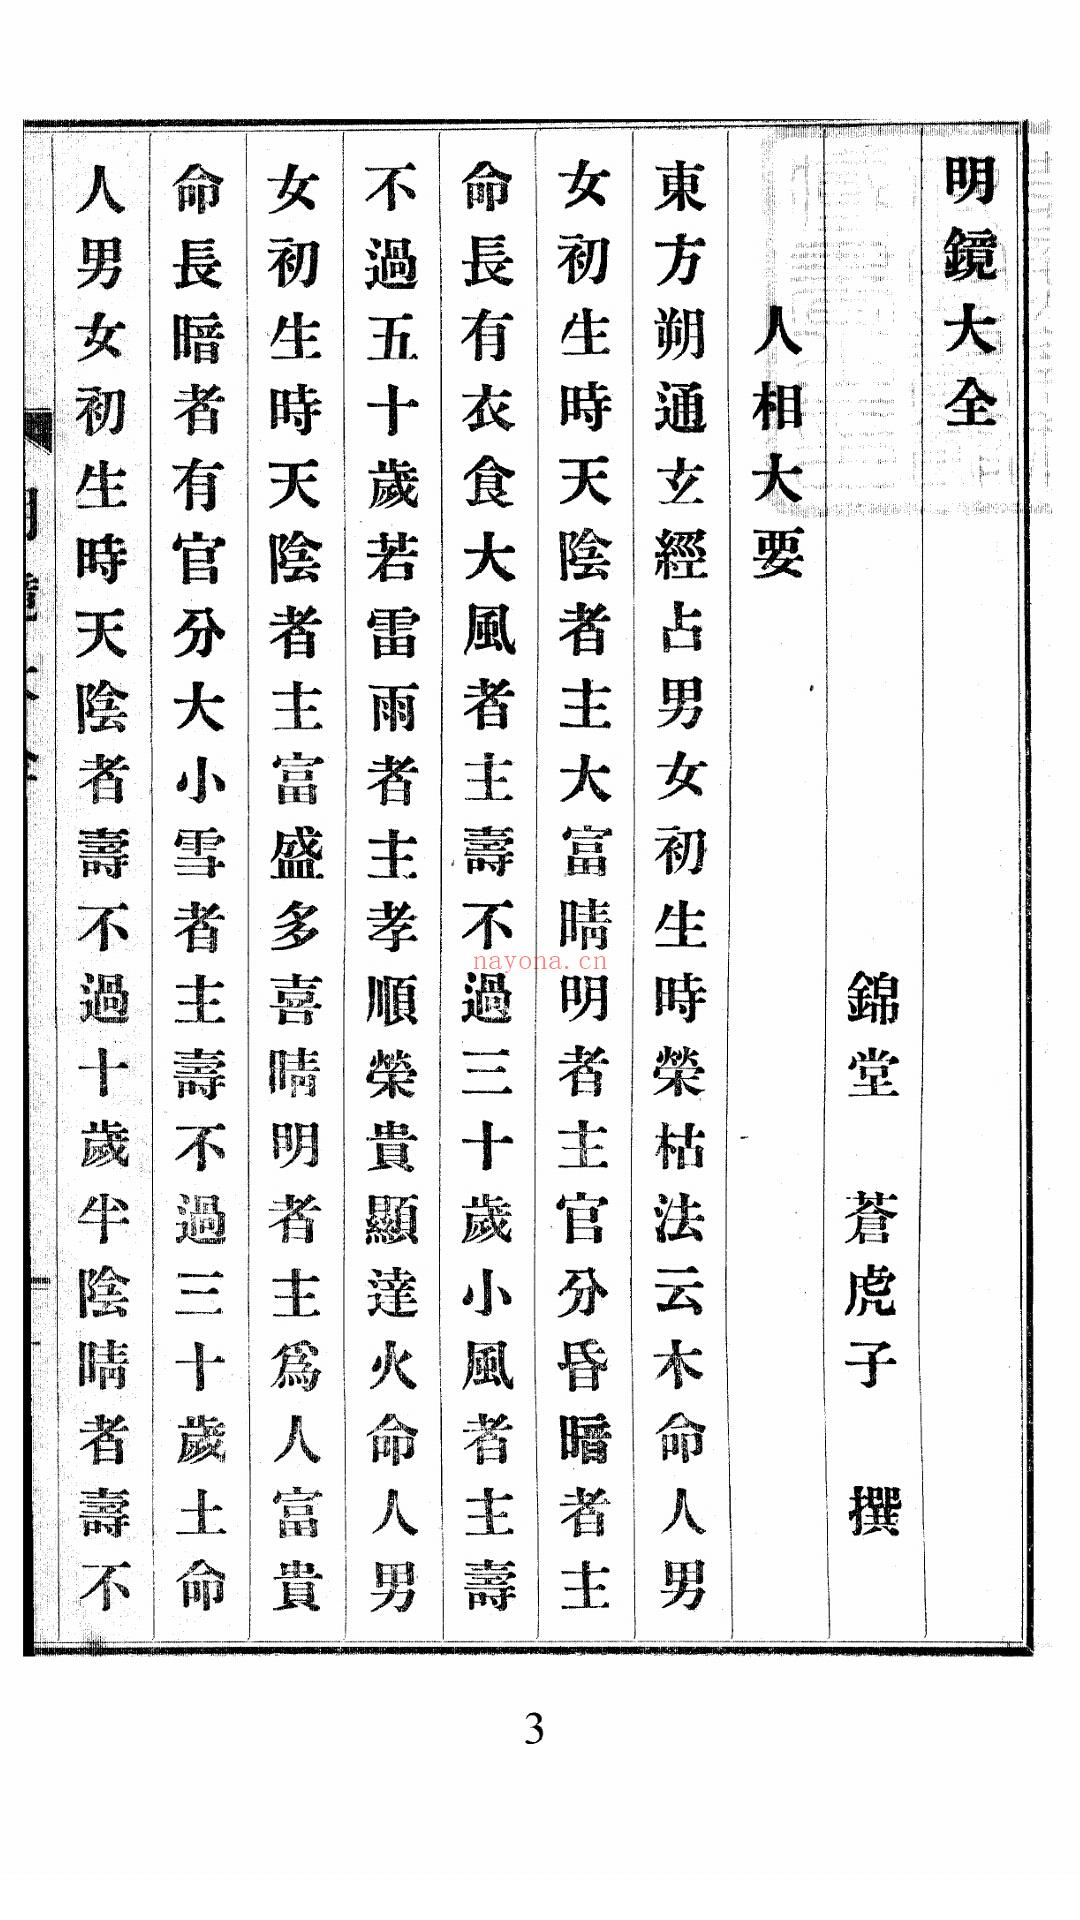 明鏡大全
錦堂 蒼虎子 撰
人相大要
東方朔通玄經占男女初生時榮枯法云木命人男
女初生時天陰者主大富晴明者主官分昏暗者主
命長有衣食大風者主壽不過三十歲小風者主壽
不過五十歲若雷雨者主孝順榮貴顯達火命人男
女初生時天陰者主富盛多喜晴明者主爲人富貴
命長暗者有官分大小雪者主壽不過三十歲土命
人男女初生時天陰者壽不過十歲半陰晴者壽不
nayona.cn
3